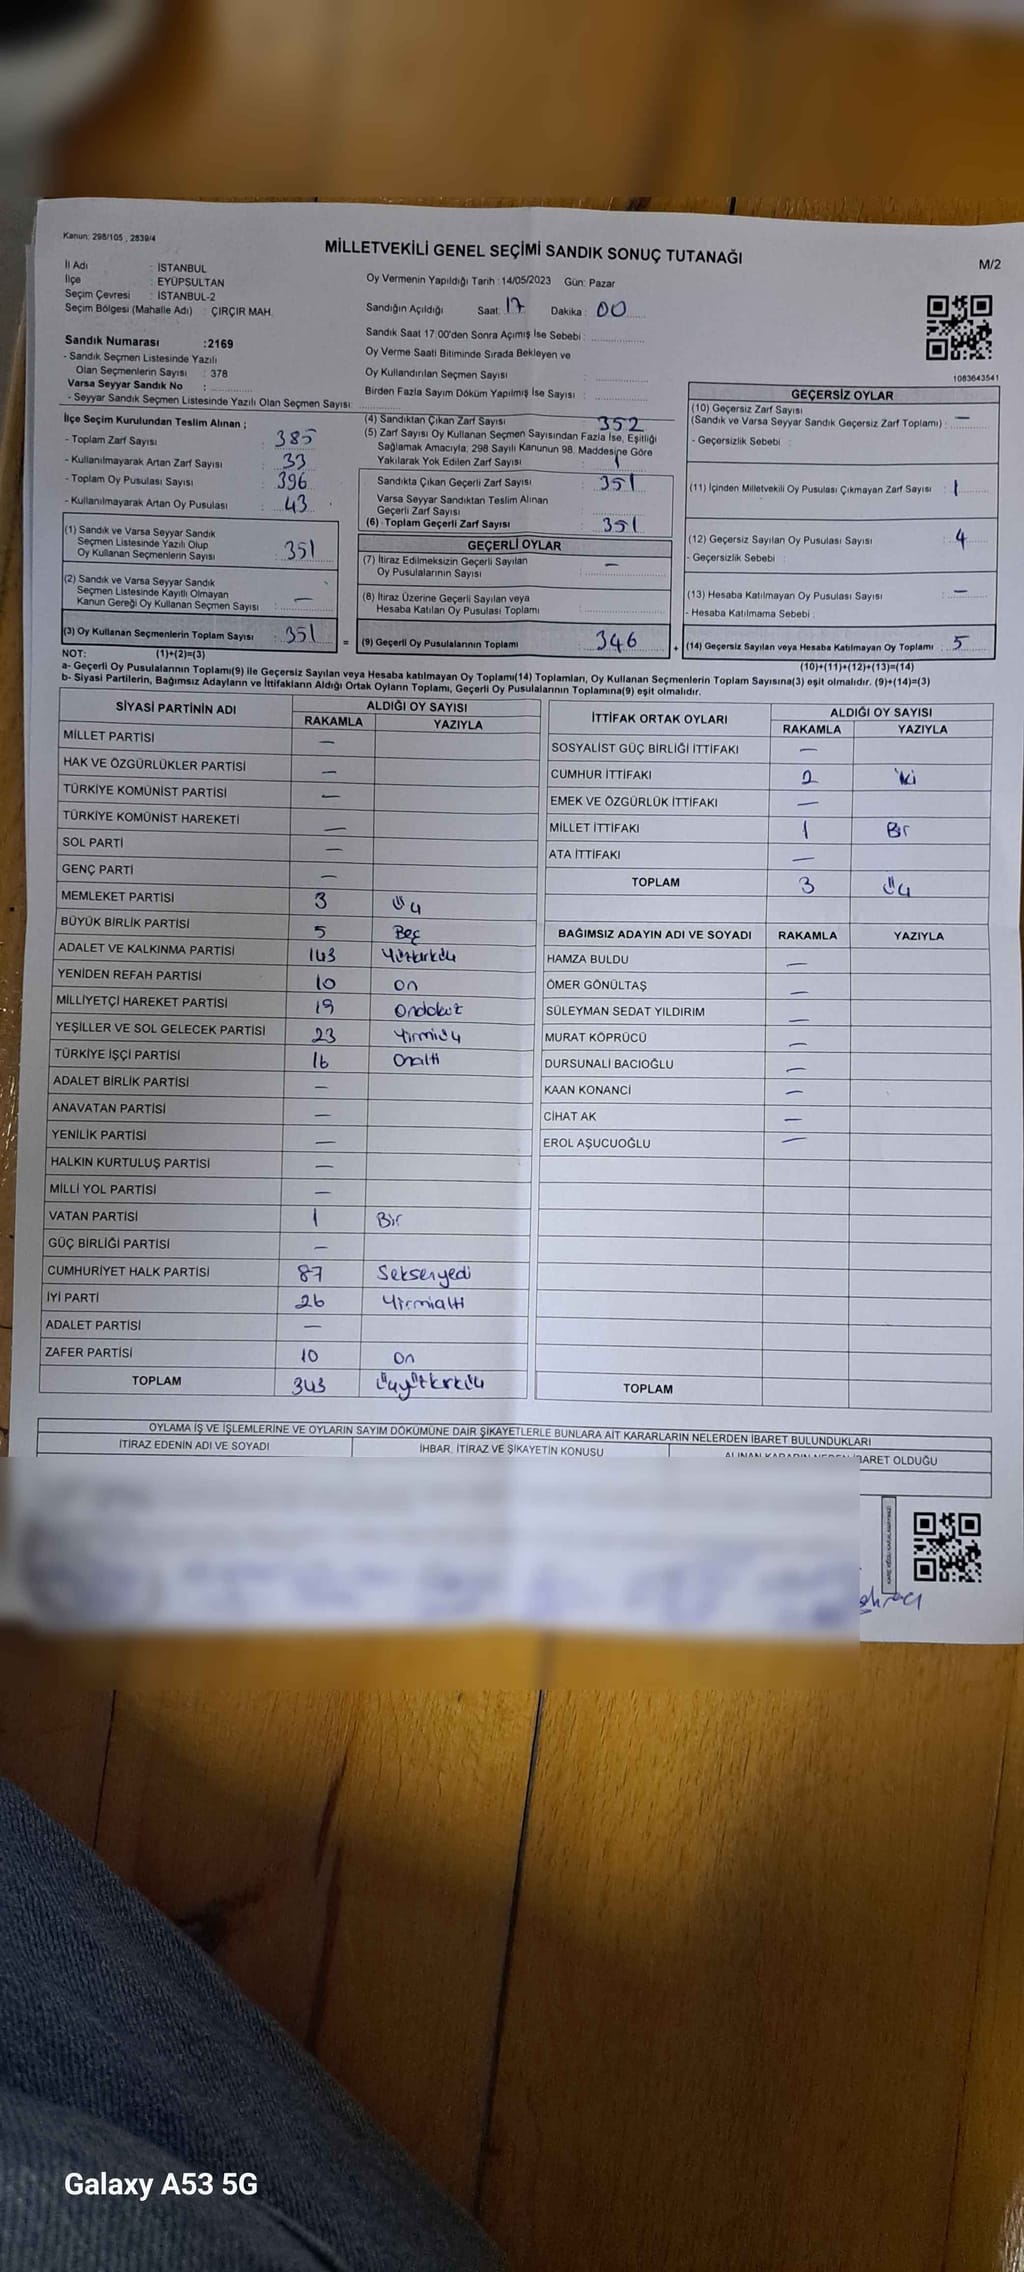 Kanun: 298/105 , 2839/4
MİLLETVEKİLİ GENEL SEÇİMİ SANDIK SONUÇ TUTANAĞI
M/2
İl Adı : İSTANBUL
İlçe : EYÜPSULTAN
Seçim Çevresi : İSTANBUL-2
Seçim Bölgesi (Mahalle Adı) : ÇIRÇIR MAH.
Sandık Numarası :2169
- Sandık Seçmen Listesinde Yazılı
Olan Seçmenlerin Sayısı : 378
Varsa Seyyar Sandık No :
- Seyyar Sandık Seçmen Listesinde Yazılı Olan Seçmen Sayısı:
Oy Vermenin Yapıldığı Tarih : 14/05/2023 Gün: Pazar
Sandığın Açıldığı Saat: 17 Dakika : 00
Sandık Saat 17:00'den Sonra Açımış İse Sebebi :
Oy Verme Saati Bitiminde Sırada Bekleyen ve
Oy Kullandırılan Seçmen Sayısı :
Birden Fazla Sayım Döküm Yapılmış İse Sayısı :
1083643541
İlçe Seçim Kurulundan Teslim Alınan ;
- Toplam Zarf Sayısı : 385
- Kullanılmayarak Artan Zarf Sayısı : 33
- Toplam Oy Pusulası Sayısı : 396
- Kullanılmayarak Artan Oy Pusulası : 43
(1) Sandık ve Varsa Seyyar Sandık
Seçmen Listesinde Yazılı Olup
Oy Kullanan Seçmenlerin Sayısı : 351
(2) Sandık ve Varsa Seyyar Sandık
Seçmen Listesinde Kayıtlı Olmayan
Kanun Gereği Oy Kullanan Seçmen Sayısı : —
(3) Oy Kullanan Seçmenlerin Toplam Sayısı : 351 =
(4) Sandıktan Çıkan Zarf Sayısı : 352
(5) Zarf Sayısı Oy Kullanan Seçmen Sayısından Fazla İse, Eşitliği
Sağlamak Amacıyla, 298 Sayılı Kanunun 98. Maddesine Göre
Yakılarak Yok Edilen Zarf Sayısı : 1
Sandıkta Çıkan Geçerli Zarf Sayısı : 351
Varsa Seyyar Sandıktan Teslim Alınan
Geçerli Zarf Sayısı :
(6) Toplam Geçerli Zarf Sayısı : 351
GEÇERLİ OYLAR
(7) İtiraz Edilmeksizin Geçerli Sayılan
Oy Pusulalarının Sayısı : —
(8) İtiraz Üzerine Geçerli Sayılan veya
Hesaba Katılan Oy Pusulası Toplamı :
(9) Geçerli Oy Pusulalarının Toplamı : 346 +
GEÇERSİZ OYLAR
(10) Geçersiz Zarf Sayısı
(Sandık ve Varsa Seyyar Sandık Geçersiz Zarf Toplamı) : —
- Geçersizlik Sebebi :
(11) İçinden Milletvekili Oy Pusulası Çıkmayan Zarf Sayısı : 1
(12) Geçersiz Sayılan Oy Pusulası Sayısı : 4
- Geçersizlik Sebebi :
(13) Hesaba Katılmayan Oy Pusulası Sayısı : —
- Hesaba Katılmama Sebebi :
(14) Geçersiz Sayılan veya Hesaba Katılmayan Oy Toplamı : 5
NOT: (1)+(2)=(3)
(10)+(11)+(12)+(13)=(14)
a- Geçerli Oy Pusulalarının Toplamı(9) ile Geçersiz Sayılan veya Hesaba katılmayan Oy Toplamı(14) Toplamları, Oy Kullanan Seçmenlerin Toplam Sayısına(3) eşit olmalıdır. (9)+(14)=(3)
b- Siyasi Partilerin, Bağımsız Adayların ve İttifakların Aldığı Ortak Oyların Toplamı, Geçerli Oy Pusulalarının Toplamına(9) eşit olmalıdır.
SİYASİ PARTİNİN ADI ALDIĞI OY SAYISI
RAKAMLA YAZIYLA
MİLLET PARTİSİ —
HAK VE ÖZGÜRLÜKLER PARTİSİ —
TÜRKİYE KOMÜNİST PARTİSİ —
TÜRKİYE KOMÜNİST HAREKETİ —
SOL PARTİ —
GENÇ PARTİ —
MEMLEKET PARTİSİ 3 Üç
BÜYÜK BİRLİK PARTİSİ 5 Beş
ADALET VE KALKINMA PARTİSİ 143 Yüzkırküç
YENİDEN REFAH PARTİSİ 10 on
MİLLİYETÇİ HAREKET PARTİSİ 19 Ondokuz
YEŞİLLER VE SOL GELECEK PARTİSİ 23 Yirmiüç
TÜRKİYE İŞÇİ PARTİSİ 16 Onaltı
ADALET BİRLİK PARTİSİ —
ANAVATAN PARTİSİ —
YENİLİK PARTİSİ —
HALKIN KURTULUŞ PARTİSİ —
MİLLİ YOL PARTİSİ —
VATAN PARTİSİ 1 Bir
GÜÇ BİRLİĞİ PARTİSİ —
CUMHURİYET HALK PARTİSİ 87 Seksenyedi
İYİ PARTİ 26 Yirmialtı
ADALET PARTİSİ —
ZAFER PARTİSİ 10 On
TOPLAM 343 Üçyüzkırküç
İTTİFAK ORTAK OYLARI ALDIĞI OY SAYISI
RAKAMLA YAZIYLA
SOSYALİST GÜÇ BİRLİĞİ İTTİFAKI —
CUMHUR İTTİFAKI 2 İki
EMEK VE ÖZGÜRLÜK İTTİFAKI —
MİLLET İTTİFAKI 1 Bir
ATA İTTİFAKI —
TOPLAM 3 Üç
BAĞIMSIZ ADAYIN ADI VE SOYADI RAKAMLA YAZIYLA
HAMZA BULDU —
ÖMER GÖNÜLTAŞ —
SÜLEYMAN SEDAT YILDIRIM —
MURAT KÖPRÜCÜ —
DURSUNALİ BACIOĞLU —
KAAN KONANCİ —
CİHAT AK —
EROL AŞUCUOĞLU —
TOPLAM
OYLAMA İŞ VE İŞLEMLERİNE VE OYLARIN SAYIM DÖKÜMÜNE DAİR ŞİKAYETLERLE BUNLARA AİT KARARLARIN NELERDEN İBARET BULUNDUKLARI
İTİRAZ EDENİN ADI VE SOYADI İHBAR, İTİRAZ VE ŞİKAYETİN KONUSU ALINAN KARARIN NEDEN İBARET OLDUĞU
Galaxy A53 5G